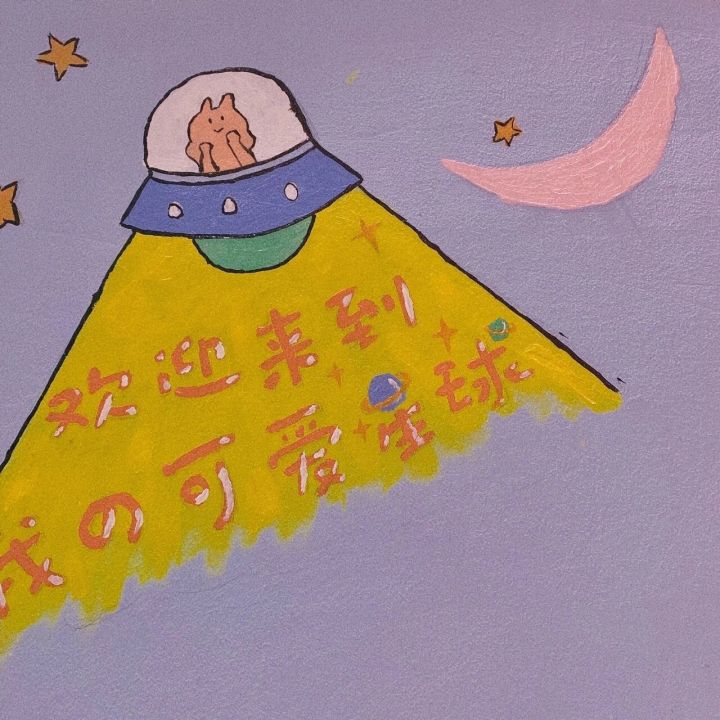 欢迎来到
我の可爱星球